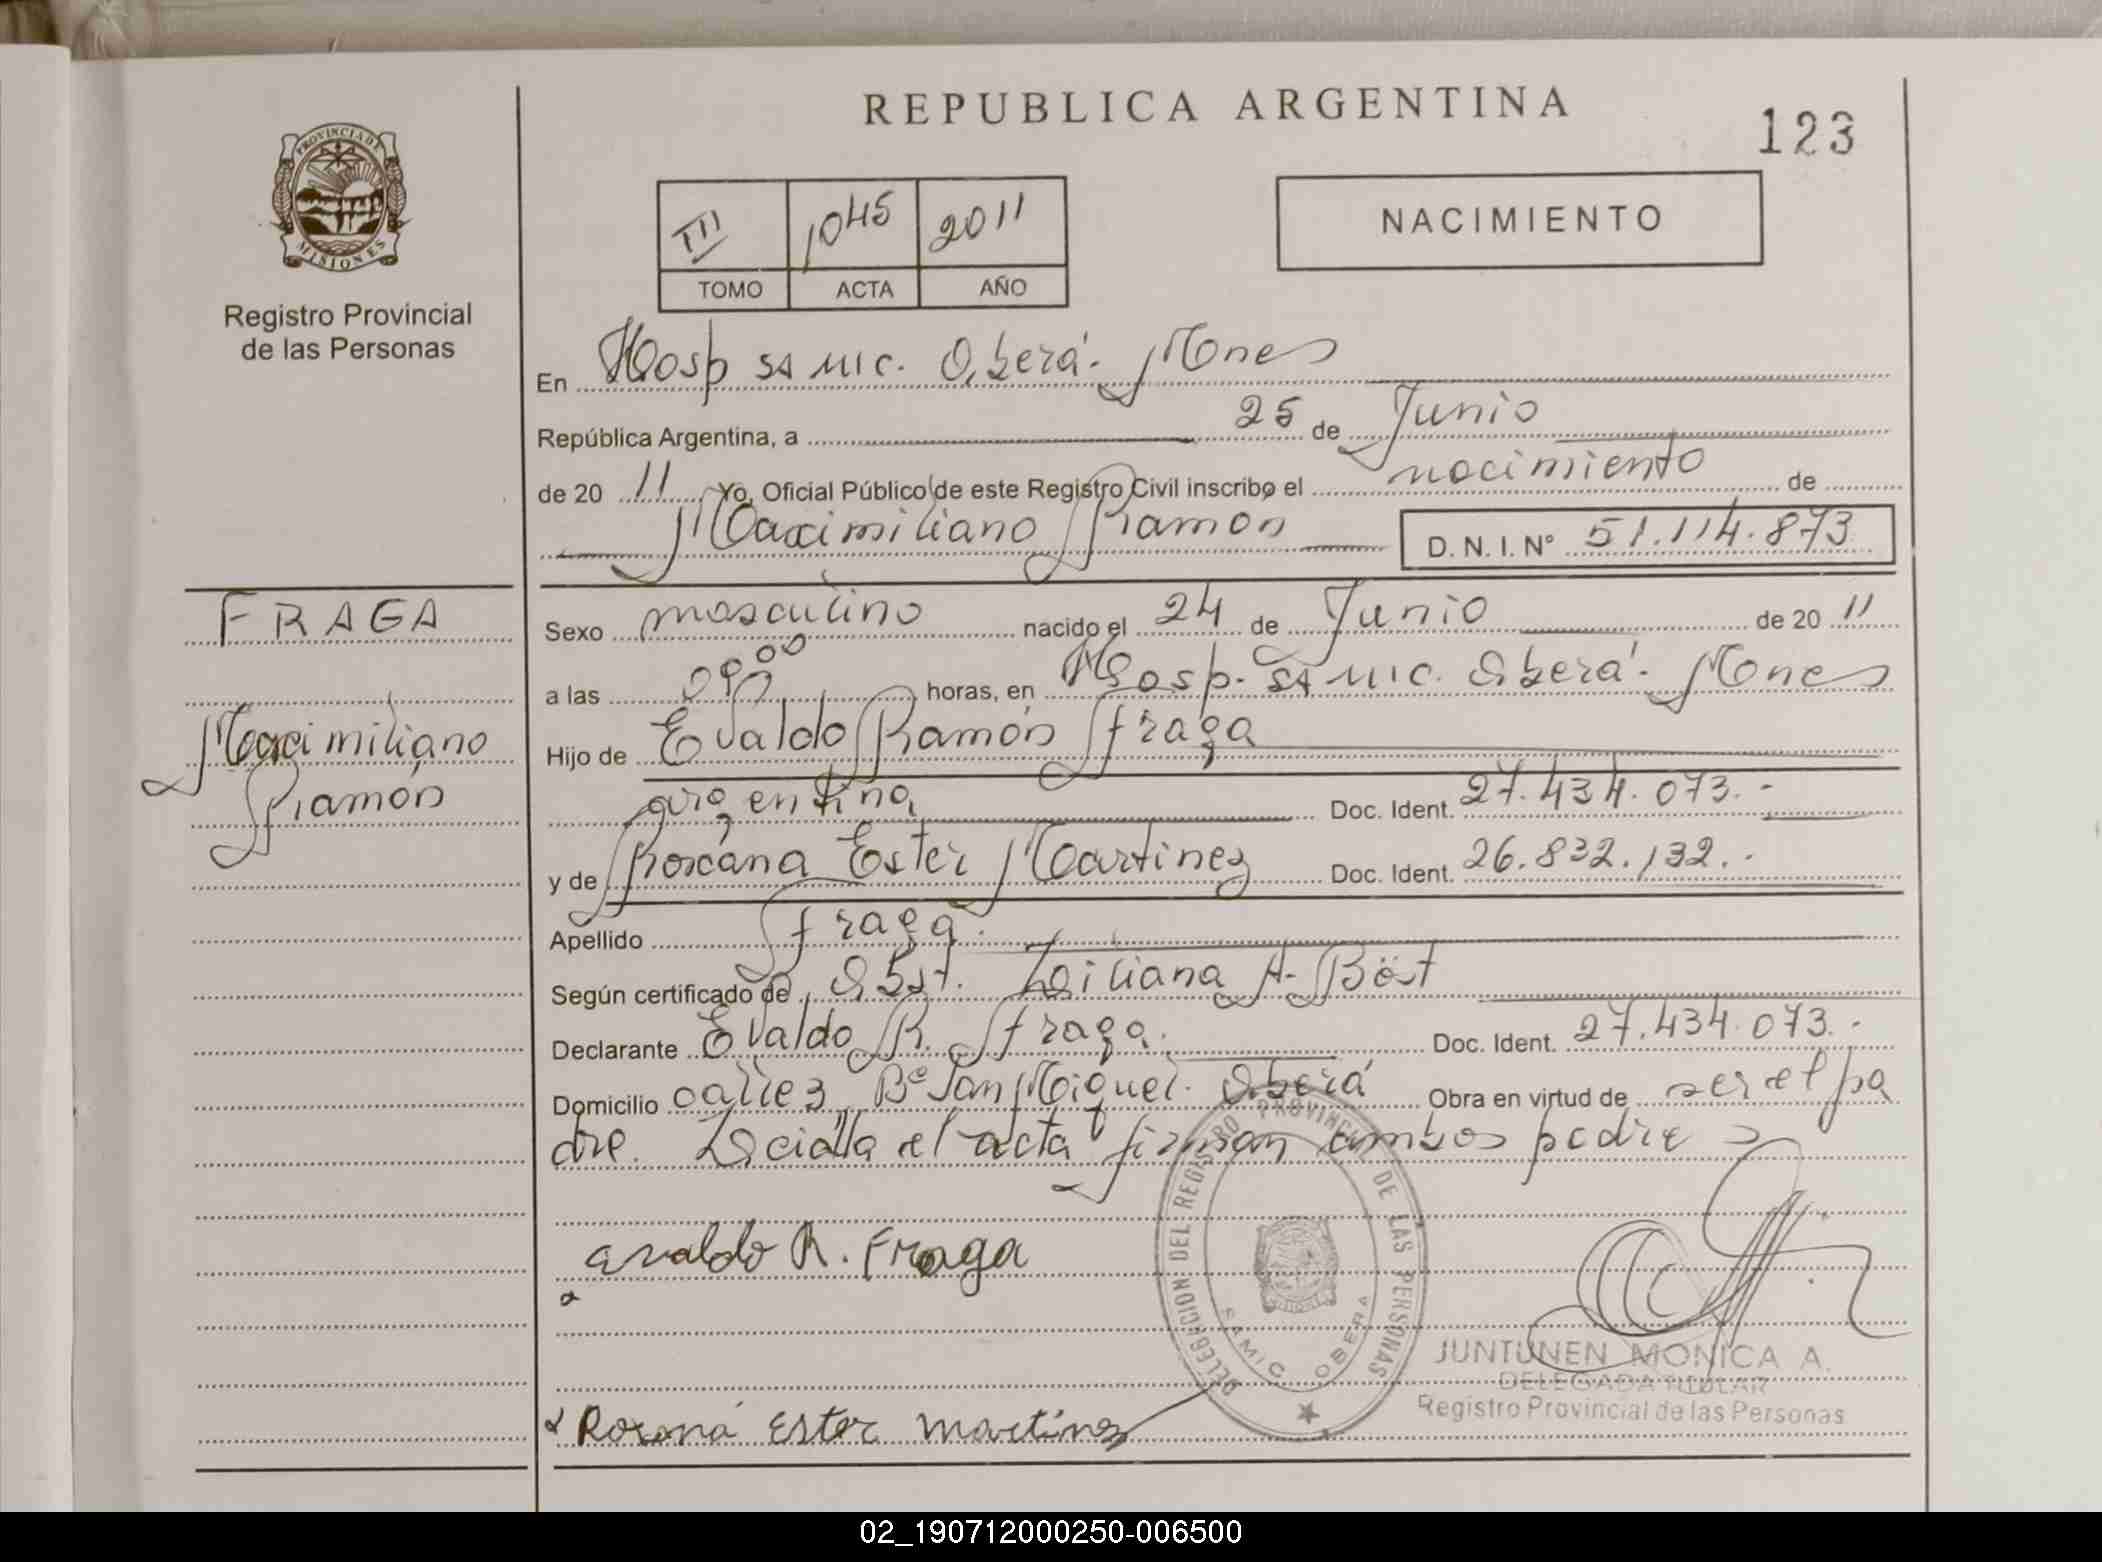 REPUBLICA ARGENTINA
123
PROVINCIA DE
MISIONES
Registro Provincial
de las Personas
III 1045 2011
TOMO ACTA AÑO
NACIMIENTO
En Hosp SAMIC. Oberá. Mnes
República Argentina, a 25 de Junio
de 20 11 Yo, Oficial Público de este Registro Civil inscribo el nacimiento de
Maximiliano Ramón D. N. I. N° 51.114.873
FRAGA
Maximiliano
Ramón
Sexo masculino nacido el 24 de Junio de 20 11
a las 09:00 horas, en Hosp. SAMIC. Oberá. Mnes
Hijo de Evaldo Ramón Fraga
argentina Doc. Ident. 27.434.073.-
y de Roxana Ester Martinez Doc. Ident. 26.832.132.-
Apellido Fraga.
Según certificado de Obst. Liliana A. Böt
Declarante Evaldo R. Fraga. Doc. Ident. 27.434.073.-
Domicilio calle 3 B° San Miguel. Oberá Obra en virtud de ser el pa
dre. Leida el acta firman ambos padres
Evaldo R. Fraga
Roxana Ester Martinez
DELEGACION DEL REGISTRO PROVINCIAL DE LAS PERSONAS
SAMIC OBERA
JUNTUNEN MONICA A.
DELEGADA TITULAR
Registro Provincial de las Personas
02_190712000250-006500